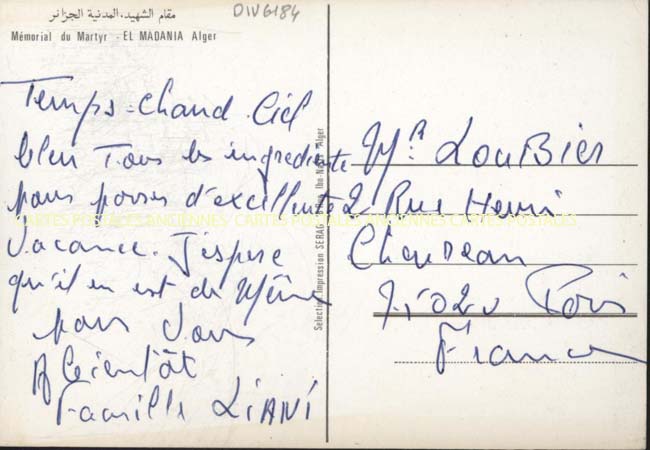 مقام الشهيد، المدنية الجزائر
DIV6184
Mémorial du Martyr - EL MADANIA Alger
Temps-chaud. Ciel
bleu Tous les ingrediente
pour passer d'excellente
Vacance. J'espere
qu'il en est de Même
pour Vous
A Bientôt
Famille LIANI
Mr. LouBier
2 Rue Henri
France
CARTES POSTALES ANCIENNES CARTES POSTALES ANCIENNES CARTES POSTALES
Impression SERAG Alger